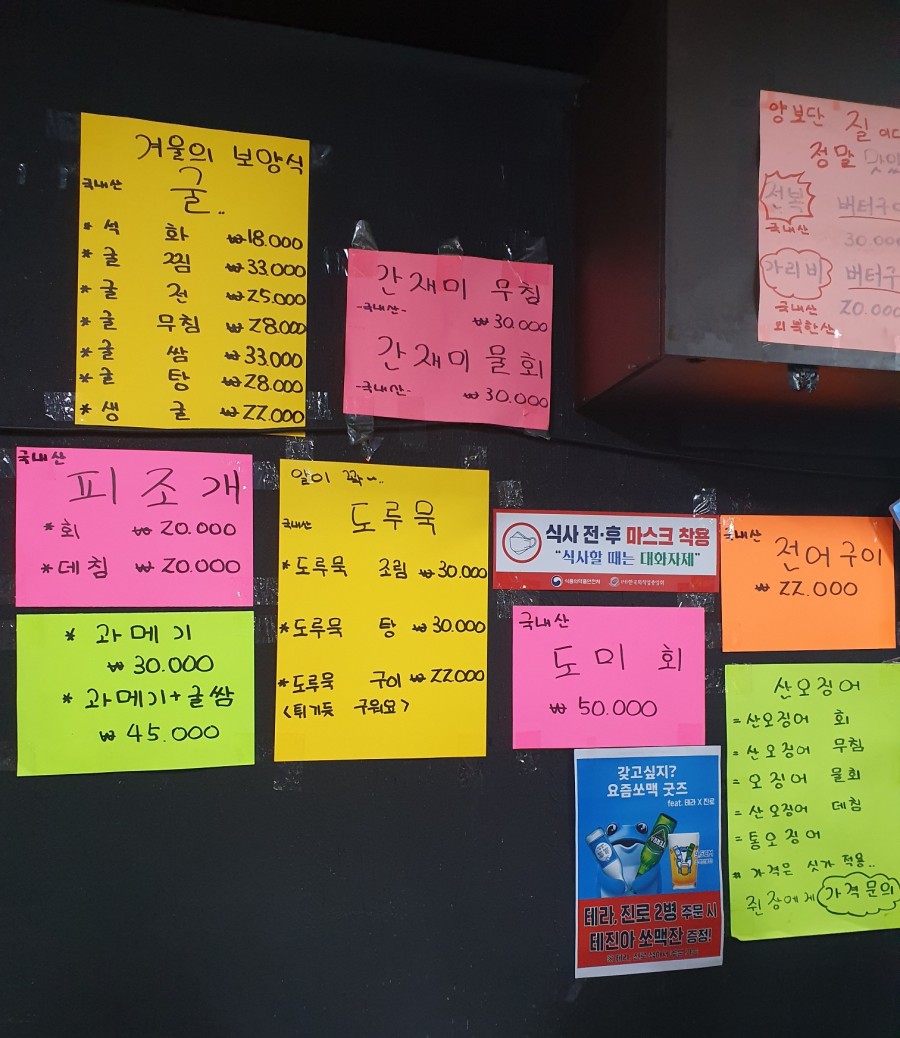 겨울의 보양식
국내산 굴..
* 석 화 ₩18.000
* 굴 찜 ₩33.000
* 굴 전 ₩25.000
* 굴 무침 ₩28.000
* 굴 쌈 ₩33.000
* 굴 탕 ₩28.000
* 생 굴 ₩22.000
간재미 무침
-국내산-
₩30.000
간재미 물회
-국내산-
₩30.000
양보단 질
정말
전복 버터구
국내산
30.000
가리비 버터구
국내산 20.000
외 북한산
국내산
피조개
* 회 ₩20.000
* 데침 ₩20.000
* 과메기
₩30.000
* 과메기+굴쌈
₩45.000
알이 꽉~..
국내산 도루묵
* 도루묵 조림 ₩30.000
* 도루묵 탕 ₩30.000
* 도루묵 구이 ₩22000
<튀기듯 구워요>
식사 전·후 마스크 착용
"식사할 때는 대화자제"
식품의약품안전처
국내산
도미 회
₩50.000
국내산
전어구이
₩22.000
산오징어
= 산오징어 회
= 산오징어 무침
= 오징어 물회
= 산오징어 데침
= 통오징어
* 가격은 싯가 적용..
쥔장에게 가격문의
갖고싶지?
요즘쏘맥 굿즈
feat. 테라 X 진로
테라, 진로 2병 주문 시
테진아 쏘맥잔 증정!